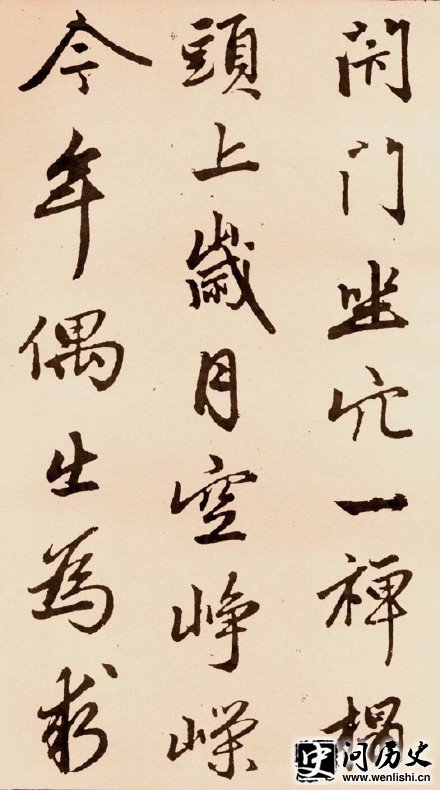 閇門坐穴一禪榻
頭上歲月空崢嶸
今年偶出為求
问历史
www.wenlishi.cn